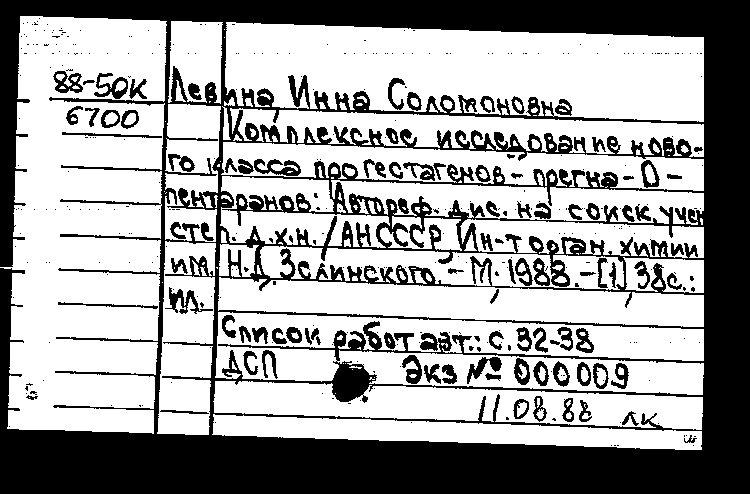 88-50К Левина, Инна Соломоновна
6700 Комплексное исследование ново-
го класса прогестагенов - прегна-D-
пентаранов: Автореф. дис. на соиск. учен
степ. д.х.н. / АН СССР, Ин-т орган. химии
им. Н.Д. Зелинского. - М., 1988. - [1], 38 с.:
ил.
Список работ авт.: с. 32-38
ДСП Экз № 000009
11.08.88 лк